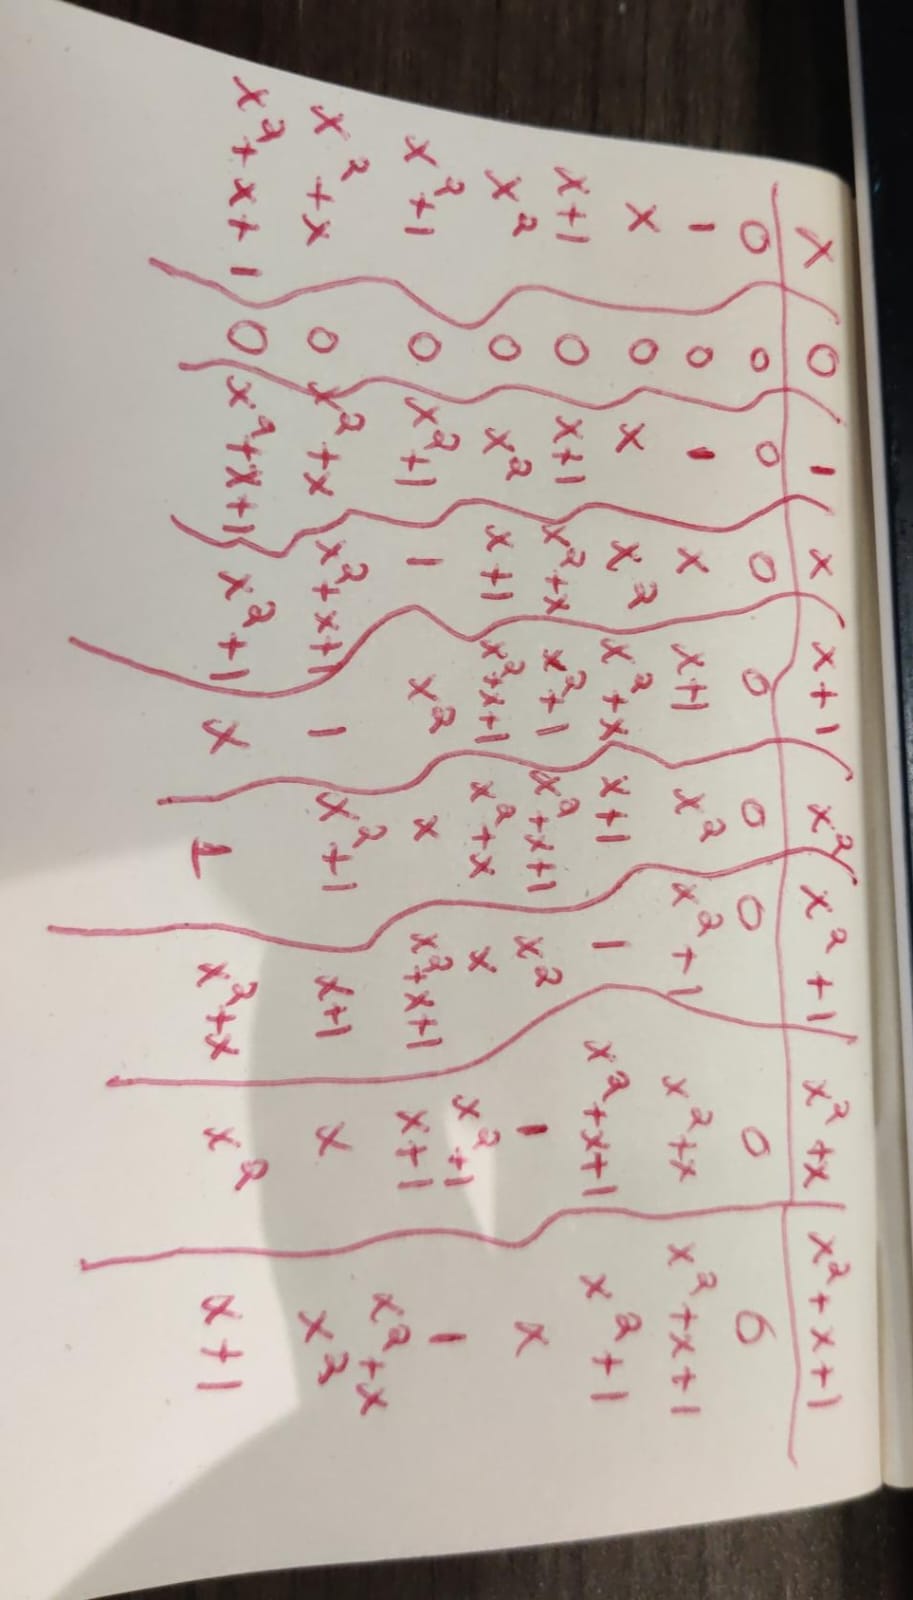 x 0 1 x x+1 x² x²+1 x²+x x²+x+1
0 0 0 0 0 0 0 0 0
1 0 1 x x+1 x² x²+1 x²+x x²+x+1
x 0 x x² x²+x x+1 1 x²+x+1 x²+1
x+1 0 x+1 x²+x x²+1 x²+x+1 x² 1 x
x² 0 x² x+1 x²+x+1 x²+x x x²+1 1
x²+1 0 x²+1 1 x² x x²+x+1 x+1 x²+x
x²+x 0 x²+x x²+x+1 1 x²+1 x+1 x x²
x²+x+1 0 x²+x+1 x²+1 x 1 x²+x x² x+1